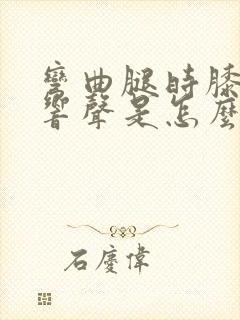 彎曲腿時膝
響聲是怎麼
石慶偉